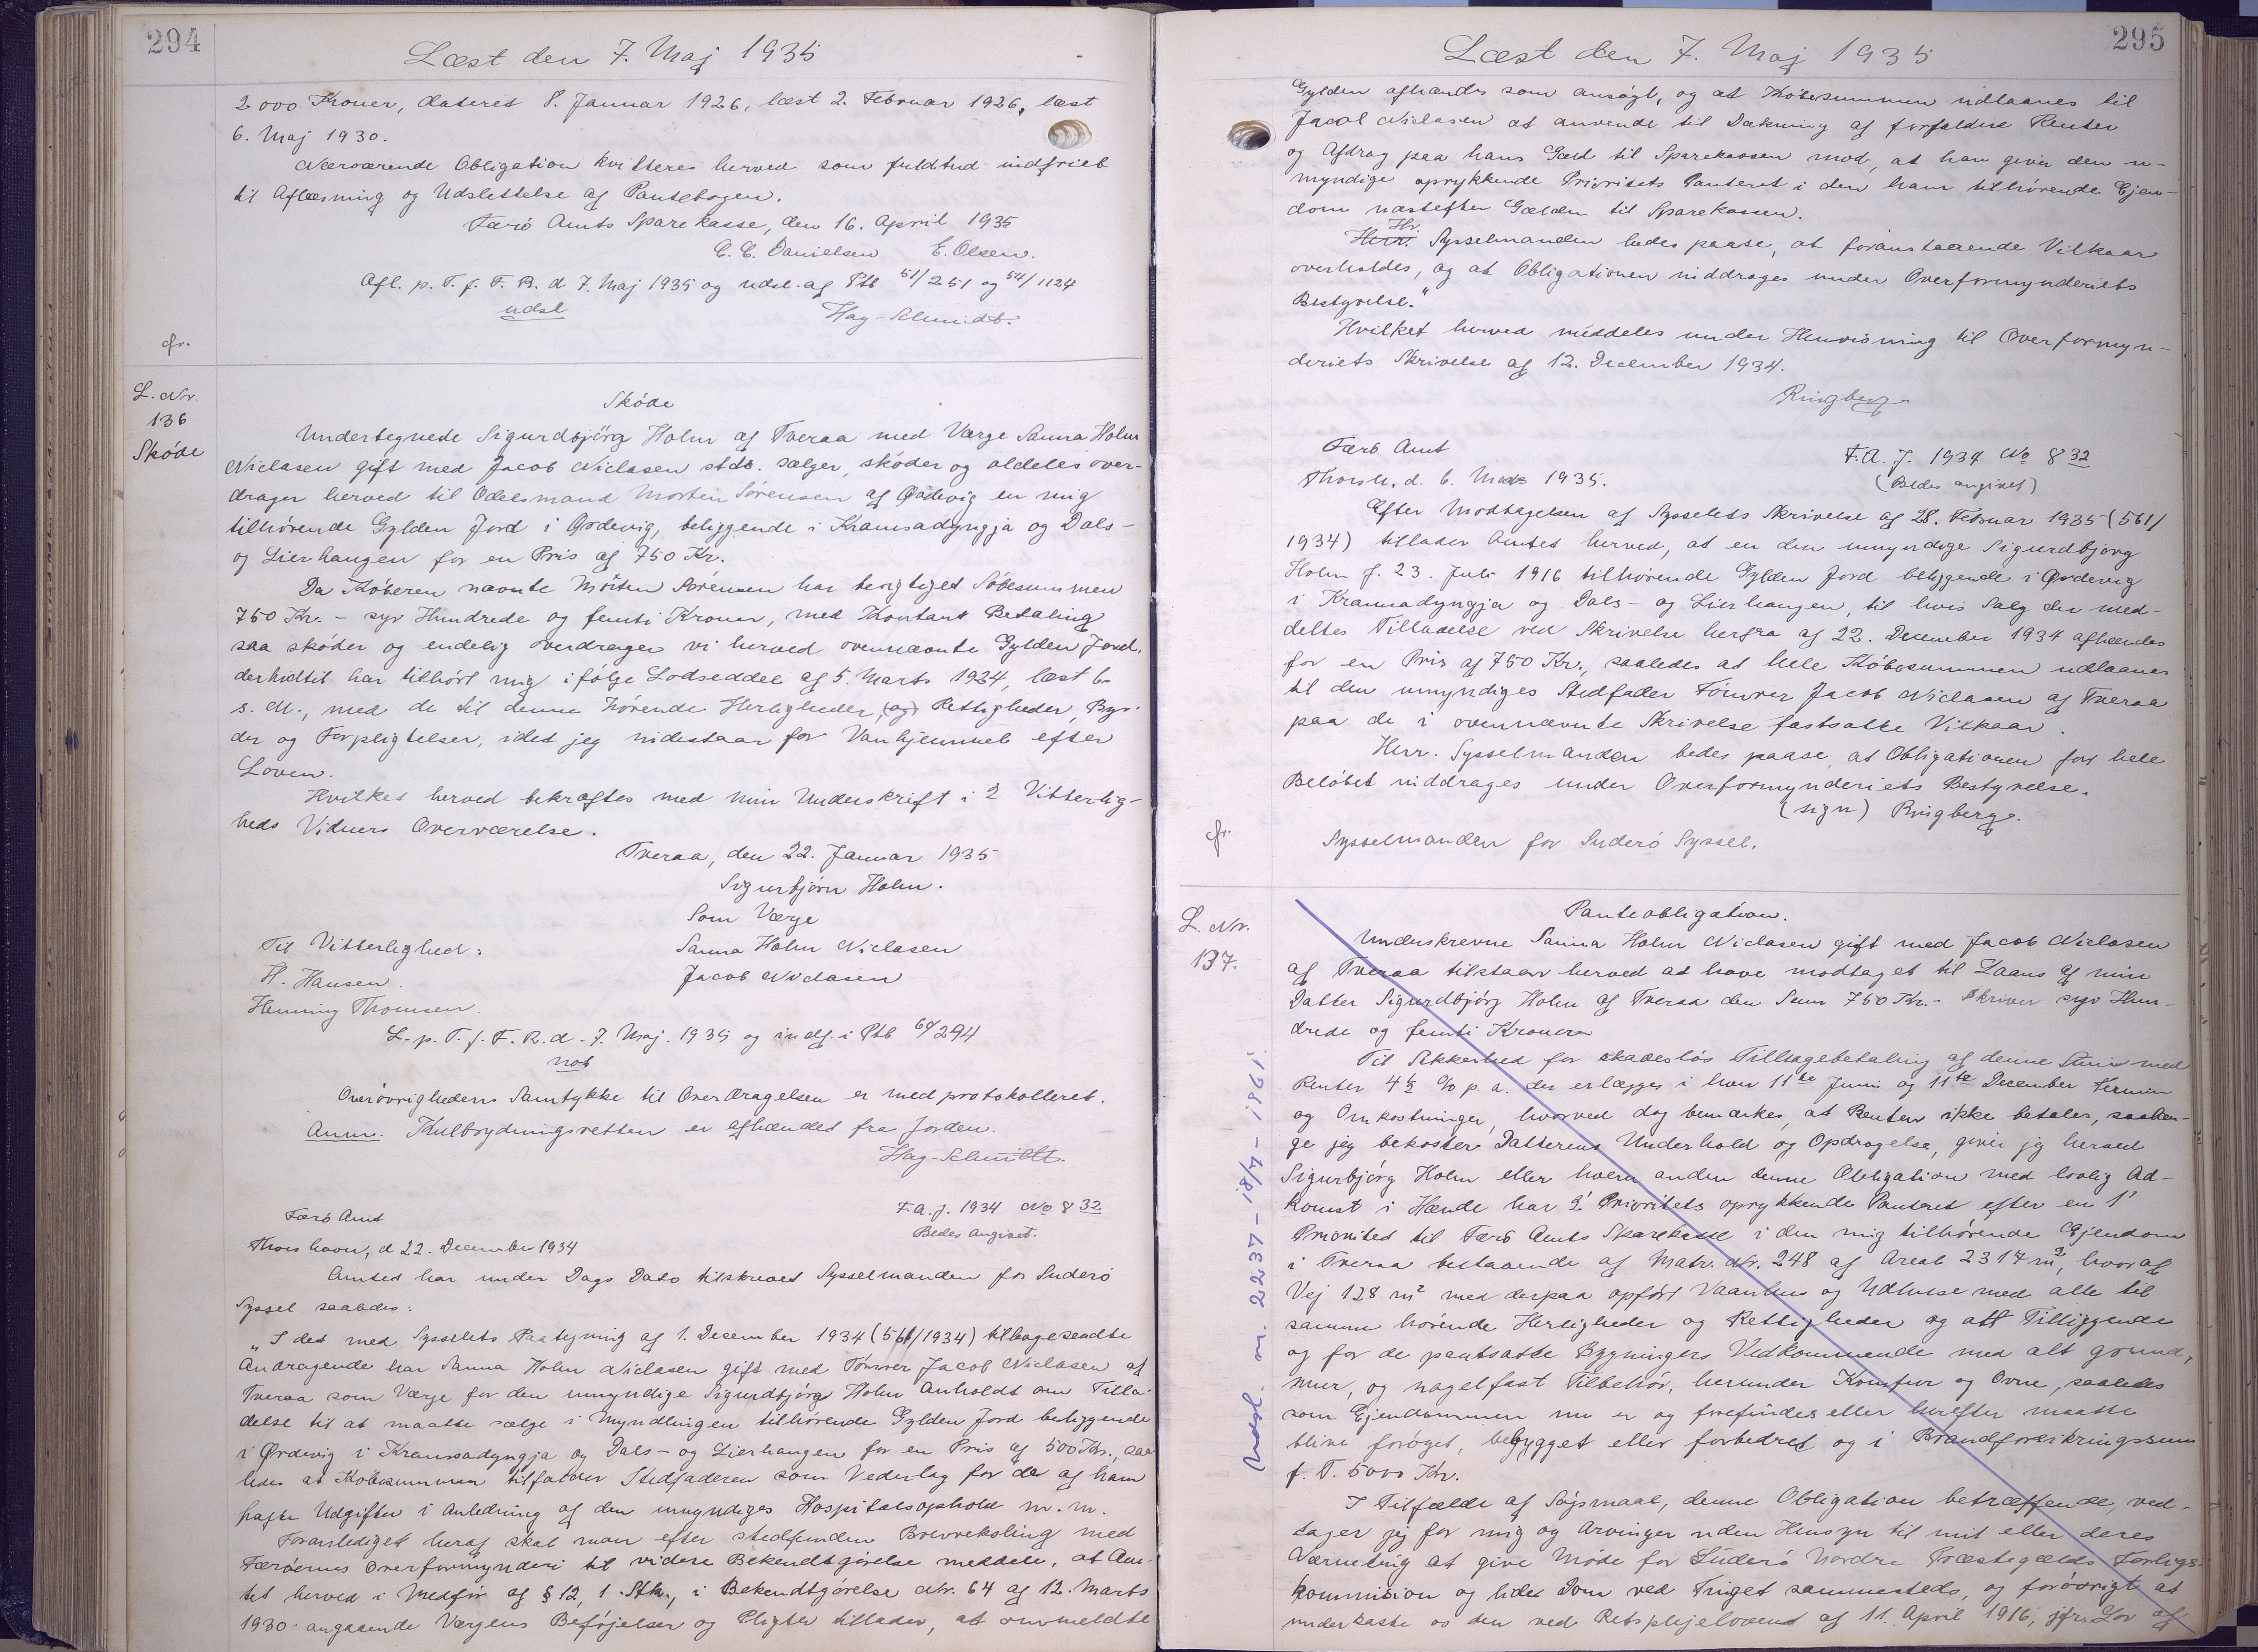 294
Læst den 7. Maj 1935
2000 Kroner, dateret 8. Januar 1926, læst 2. Februar 1926, læst
6. Maj 1930.
Nærværende Obligation kvitteres herved som fuldtud indfriet
til Aflæsning og Udslettelse af Pantebogen.
Færö Amts Sparekasse, den 16. April 1935
C. C. Danielsen E. Olsen.
Afl. p. T. f. F. R. d 7. Maj 1935 og udsl. af Ptb 51/251 og 54/1124
udsl Hag-Schmidt.
cfr.
L. Nr.
136
Sköde
Sköde
Undertegnede Sigurdbjörg Holm af Tveraa med Værge Sanna Holm
Niclasen gift med Jacob Niclasen stds. sælger, sköder og aldeles over-
drager herved til Odelsmand Morten Sörensen af Ørdevig en mig
tilhörende Gylden Jord i Ørdevig, beliggende i Kramsadyngja og Dals-
og Lierhaugen for en Pris af 750 Kr.
Da Köberen nævnte Morten Sörensen har berigtiget Köbesummen
750 Kr. - syv Hundrede og femti Kroner, med Kontant Betaling
saa sköder og endelig overdrager vi herved ovennævnte Gylden Jord,
der hidtil har tilhört mig ifölge Lodseddel af 5. Marts 1924, læst 6.
s. M., med de til denne hörende Herligheder, (og) Rettigheder, Byr-
der og Forpligtelser, idet jeg indestaar for Vanhjemmel efter
Loven.
Hvilket herved bekræftes med min Underskrift i 2 Vitterlig-
heds Vidners Overværelse.
Tveraa, den 22. Januar 1935
Sigurbjörn Holm.
Som Værge
Til Vitterlighed: Sanna Holm Niclasen
H. Hansen. Jacob Niclasen
Henning Thomsen
L. p. T. f. F. R. d. 7. Maj. 1935 og indf. i Ptb 60/294
not
Overövrighedens Samtykke til Overdragelsen er med protokolleret.
Anm. Kulbrydningsretten er afhændet fra Jorden.
Hag-Schmidt.
Færö Amt F. A. J. 1934 No 832
Thorshavn, d 22. December 1934 Bedes angivet.
Amtet har under Dags Dato tilskrevet Sysselmanden for Suderö
Syssel saaledes:
„I det med Sysselets Paategning af 1. December 1934 (561/1934) tilbagesendte
Andragende har Sanna Holm Niclasen gift med Tömrer Jacob Niclasen af
Tveraa som Værge for den umyndige Sigurdbjörg Holm anholdt om Tilla-
delse til at maatte sælge i Myndlingen tilhörende Gylden Jord beliggende
i Ørdevig i Kramsadyngja og Dals- og Lierhaugen for en Pris af 500 Kr., saa-
ledes at Köbesummen tilfalder Stedfaderen som Vederlag for de af ham
hafte Udgifter i Anledning af den umyndiges Hospitalsophold m. m.
Foranlediget heraf skal man efter stedfunden Brevveksling med
Færöernes Overformynderi til videre Bekendtgörelse meddele, at Am-
tet herved i Medför af § 12, 1. Stk., i Bekendtgörelse Nr. 64 af 12. Marts
1930 angaaende Værgens Beföjelser og Pligter tillader, at ommeldte
295
Læst den 7. Maj 1935
Gylden afhændes som ansögt, og at Köbesummen udlaanes til
Jacob Niclasen at anvende til Dækning af forfaldne Renter
og Afdrag paa hans Gæld til Sparekassen mod, at han giver den u-
myndige oprykkende Prioritets Panteret i den ham tilhörende Ejen-
dom næstefter Gælden til Sparekassen.
Hr.
Herr. Sysselmanden bedes paase, at foranstaaende Vilkaar
overholdes, og at Obligationen inddrages under Overformynderiets
Bestyrelse.“
Hvilket herved meddeles under Henvisning til Overformyn-
deriets Skrivelse af 12. December 1934.
Ringberg
Færö Amt F. A. J. 1934 No 832
Thorsh. d. 6. Marts 1935. (Bedes angivet)
Efter Modtagelsen af Sysselets Skrivelse af 28. Februar 1935 (561/
1934) tillader Amtet herved, at en den umyndige Sigurdbjörg
Holm f. 23. Juli 1916 tilhörende Gylden Jord beliggende i Ørdevig
i Kramsadyngja og Dals- og Lierhaugen, til hvis Salg der med-
deltes Tilladelse ved Skrivelse herfra af 22. December 1934 afhændes
for en Pris af 750 Kr., saaledes at hele Köbesummen udlaanes
til den umyndiges Stedfader Tömrer Jacob Niclasen af Tveraa
paa de i ovennævnte Skrivelse fastsatte Vilkaar.
Herr. Sysselmanden bedes paase, at Obligationen for hele
Belöbet inddrages under Overformynderiets Bestyrelse.
(sign) Ringberg.
cfr.
Sysselmanden for Suderö Syssel.
L. Nr.
137.
Panteobligation.
Underskrevne Sanna Holm Niclasen gift med Jacob Niclasen
af Tveraa tilstaar herved at have modtaget til Laans af min
Datter Sigurdbjörg Holm af Tveraa den Sum 750 Kr. - Skriver syv Hun-
drede og femti Kroner
Til Sikkerhed for skadeslös Tilbagebetaling af denne Sum med
Renter 4½ % p. a. der erlægges i hver 11te Juni og 11te December Termin
og Omkostninger, hvorved dog bemærkes, at Renten ikke betales, saalæn-
ge jeg bekoster Datterens Underhold og Opdragelse, giver jeg herved
Sigurbjörg Holm eller hvem anden denne Obligation med lovlig Ad-
komst i Hænde har 2' Prioritets oprykkende Panteret efter en 1'
Prioritet til Færö Amts Sparekasse i den mig tilhörende Ejendom
i Tveraa bestaaende af Matr. Nr. 248 af Areal 2317 m², hvoraf
Vej 128 m² med derpaa opfört Vaanhus og Udhuse med alle til
samme hörende Herligheder og Rettigheder og alt Tilliggende
og for de pantsatte Bygningers Vedkommende med alt grund,
mur, og nagelfast Tilbehör, herunder Komfur og Ovne, saaledes
som Ejendommen nu er og forefindes eller herefter maatte
blive foröget, bebygget eller forbedret og i Brandforsikringssum
f. T. 5000 Kr.
I Tilfælde af Sögsmaal, denne Obligation betræffende, ved-
tager jeg for mig og Arvinger uden Hensyn til mit eller deres
Værneting at give Möde for Süderö Nordre Præstegælds Forligs-
kommision og lidet Dom ved Tinget sammesteds, og forövrigt at
underkaste os den ved Retsplejeloven af 11. April 1916, jfr. Lov af
Udsl. m. 2237 - 18/7 - 1961.